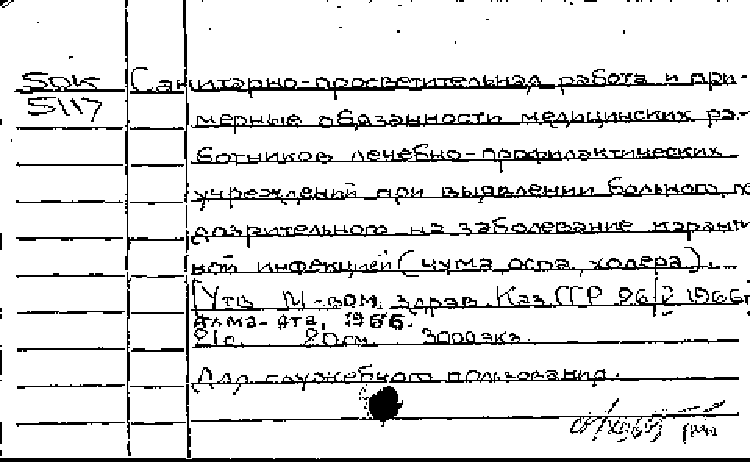 5DK Санитарно-просветительная работа и при-
5117
мерные обязанности медицинских ра-
ботников лечебно-профилактических
учреждений при выявлении больного, по
дозрительного на заболевание каранти
ной инфекцией (чума, оспа, холера)...
[Утв. М-вом здрав. КазССР 1966г
Алма-Ата, 1966.
21с. 20см. 3000экз.
Для служебного пользования.